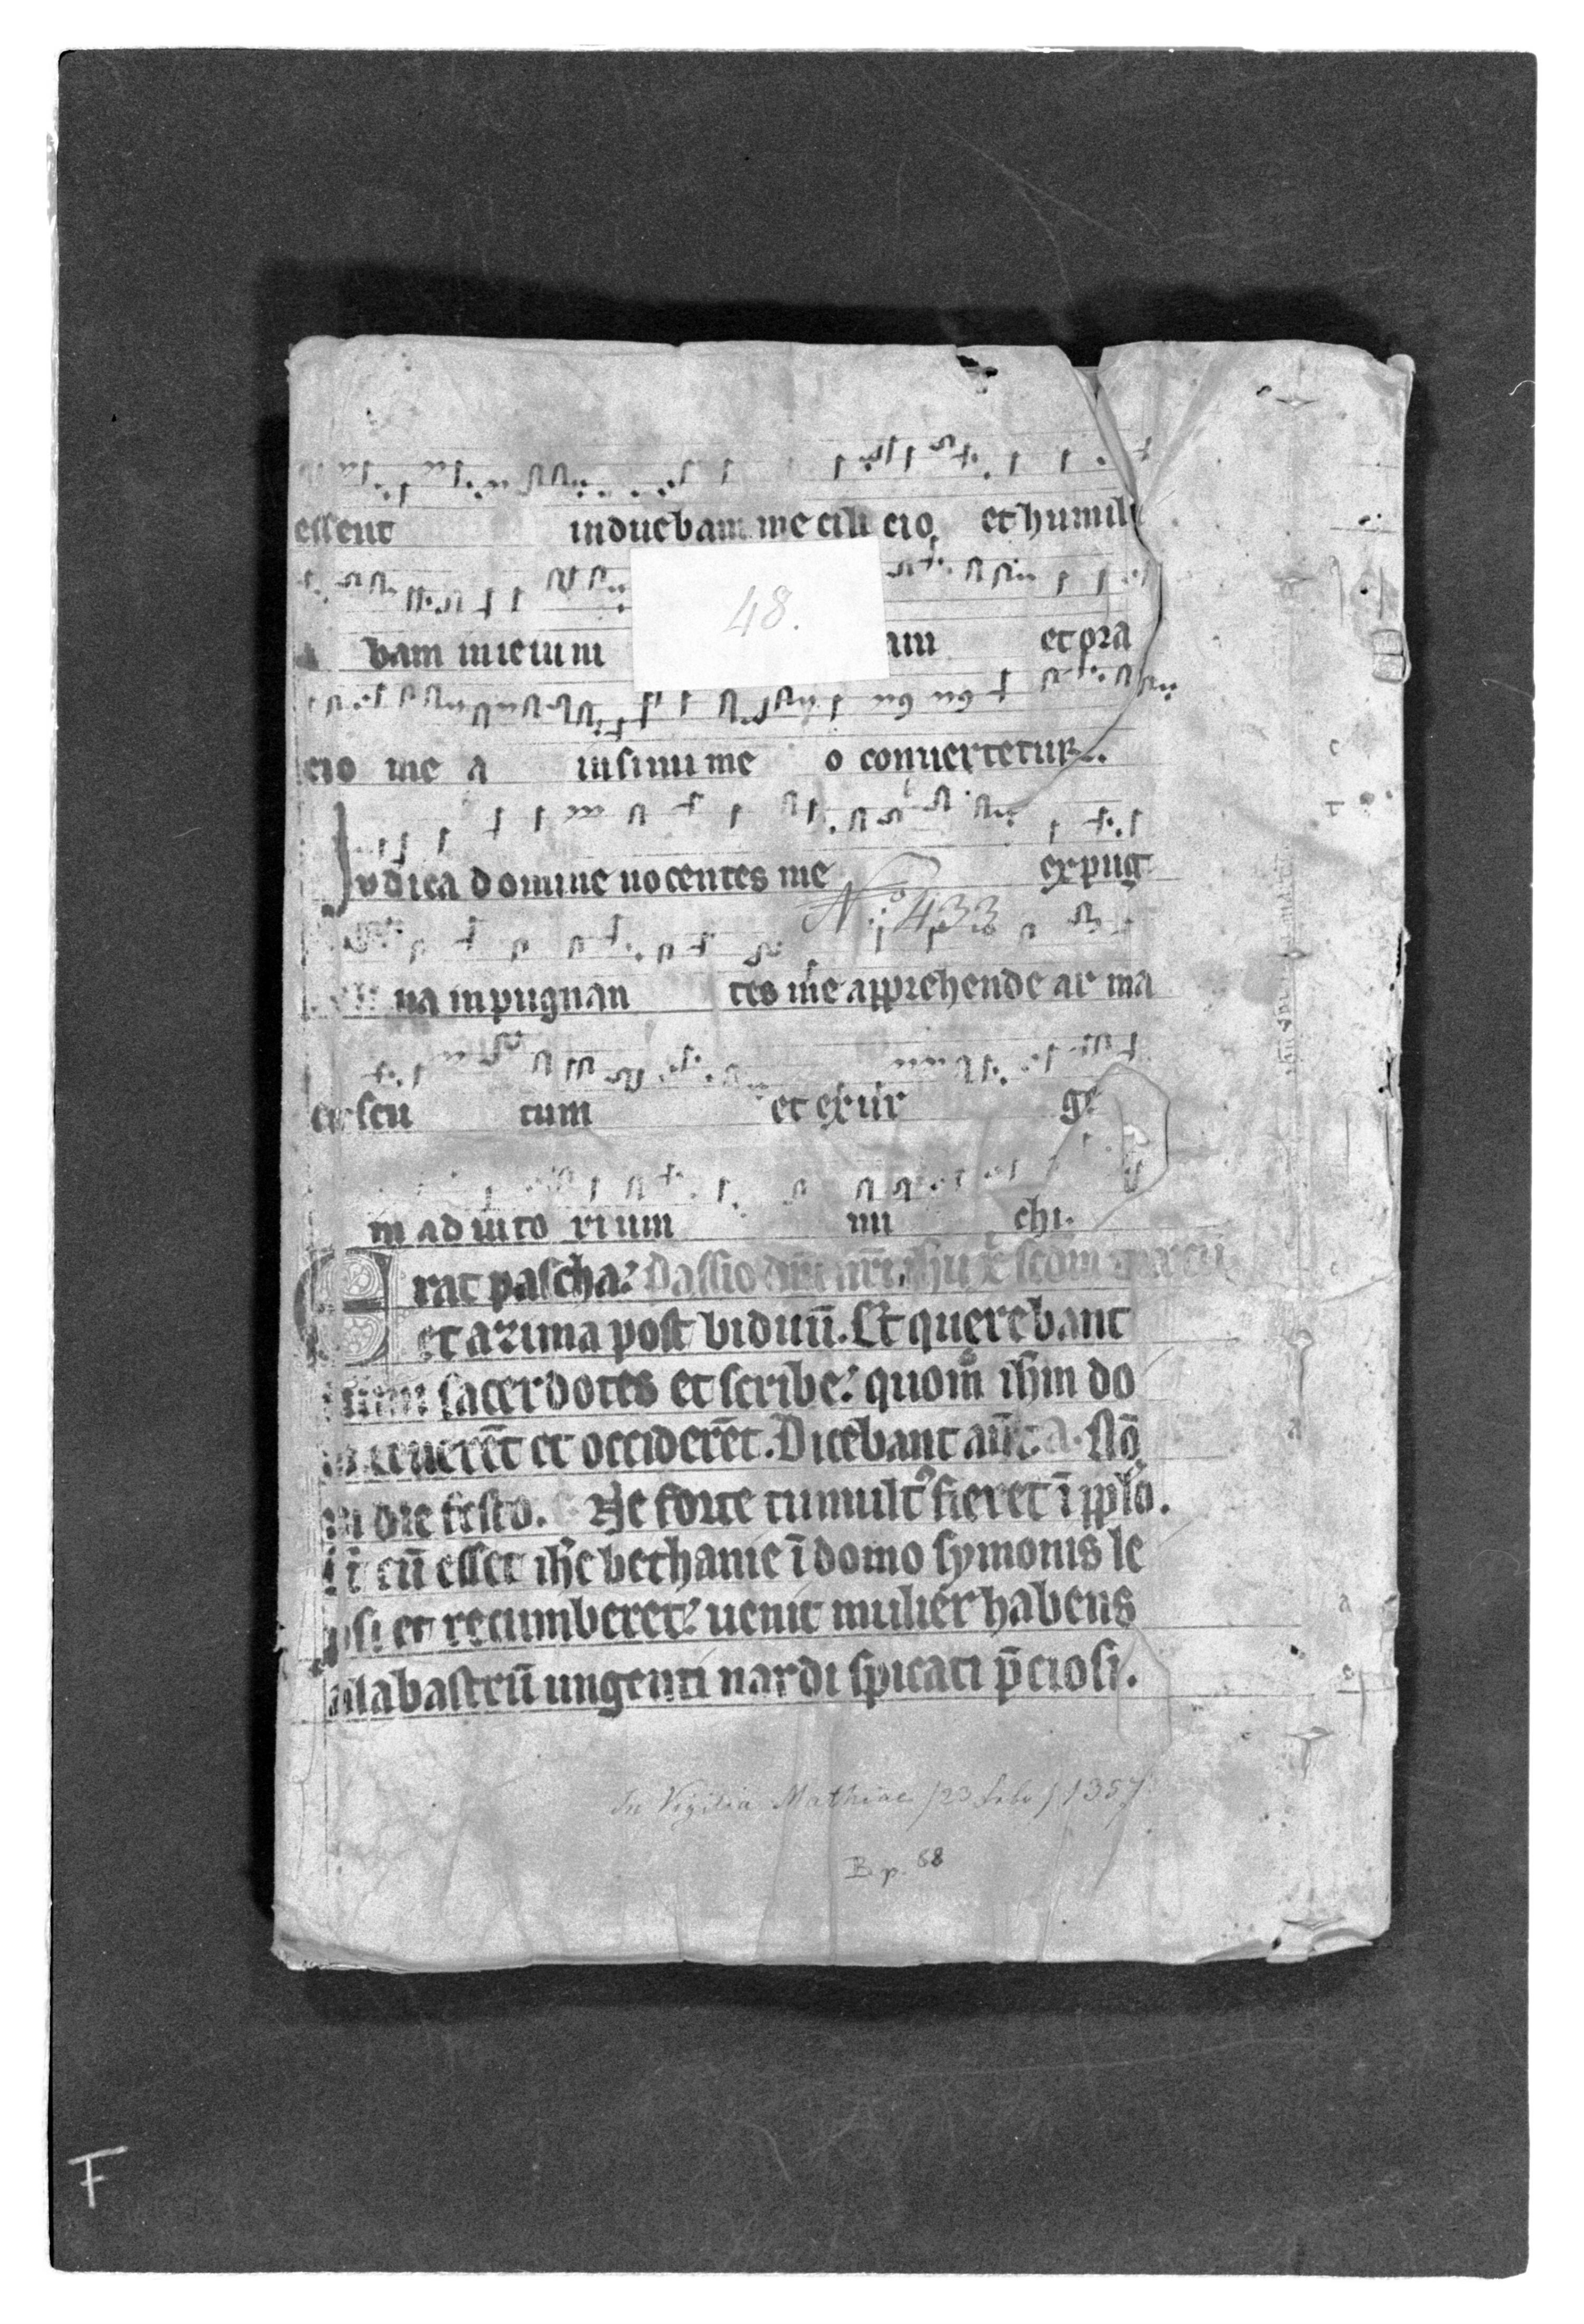 essent induebam me cili cio et humili
48.
a bam ieiuni am et ora
cio me a in sinu me o conuertetur.
Judica domine nocentes me expug
No. 433
na inpugnan tes me apprehende ar ma
et scu tum et exur ge
in ad iuto rium mi chi.
Erat pascha: Passio dn̄i nr̄i ih̄u xp̄i scd̄m marcū
et azima post biduū. Et querebant
sum̄i sacerdotes et scribe: quom̊ ih̄m do
lo tenerēt et occiderēt. Dicebant aūt. Nō
in die festo. Ne forte tumult᾽ fieret ī pp̄lo.
Et cū esset ih̄c bethanie ī domo symonis le
prosi et recumberet: uenit mulier habens
alabastrū ungenti nardi spicati p̄ciosi.
In Vigilia Mathiae /23 Febr/ 1357
B. p. 68
F